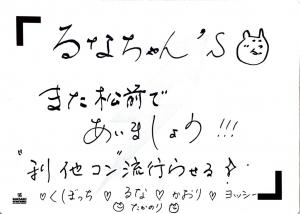 るなちゃん'S
また松前で
あいましょう!!!
"利他コン"流行らせる
♡くぼっち ♡ るな ♡ かおり ♡ ヨッシー
たかのり